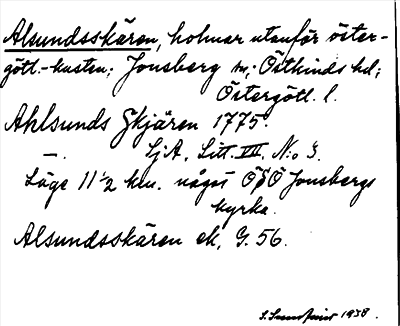 Alsundsskären, holmar utanför öster-
götl.-kusten; Jonsberg sn; Östkinds hd;
Östergötl. l.
Ahlsunds Skjären 1775.
SjA. Litt. VII. N:o 3.
Läge 11 1/2 km. något ÖSÖ Jonsbergs
kyrka.
Alsundsskären ek. G. 56.
1938.